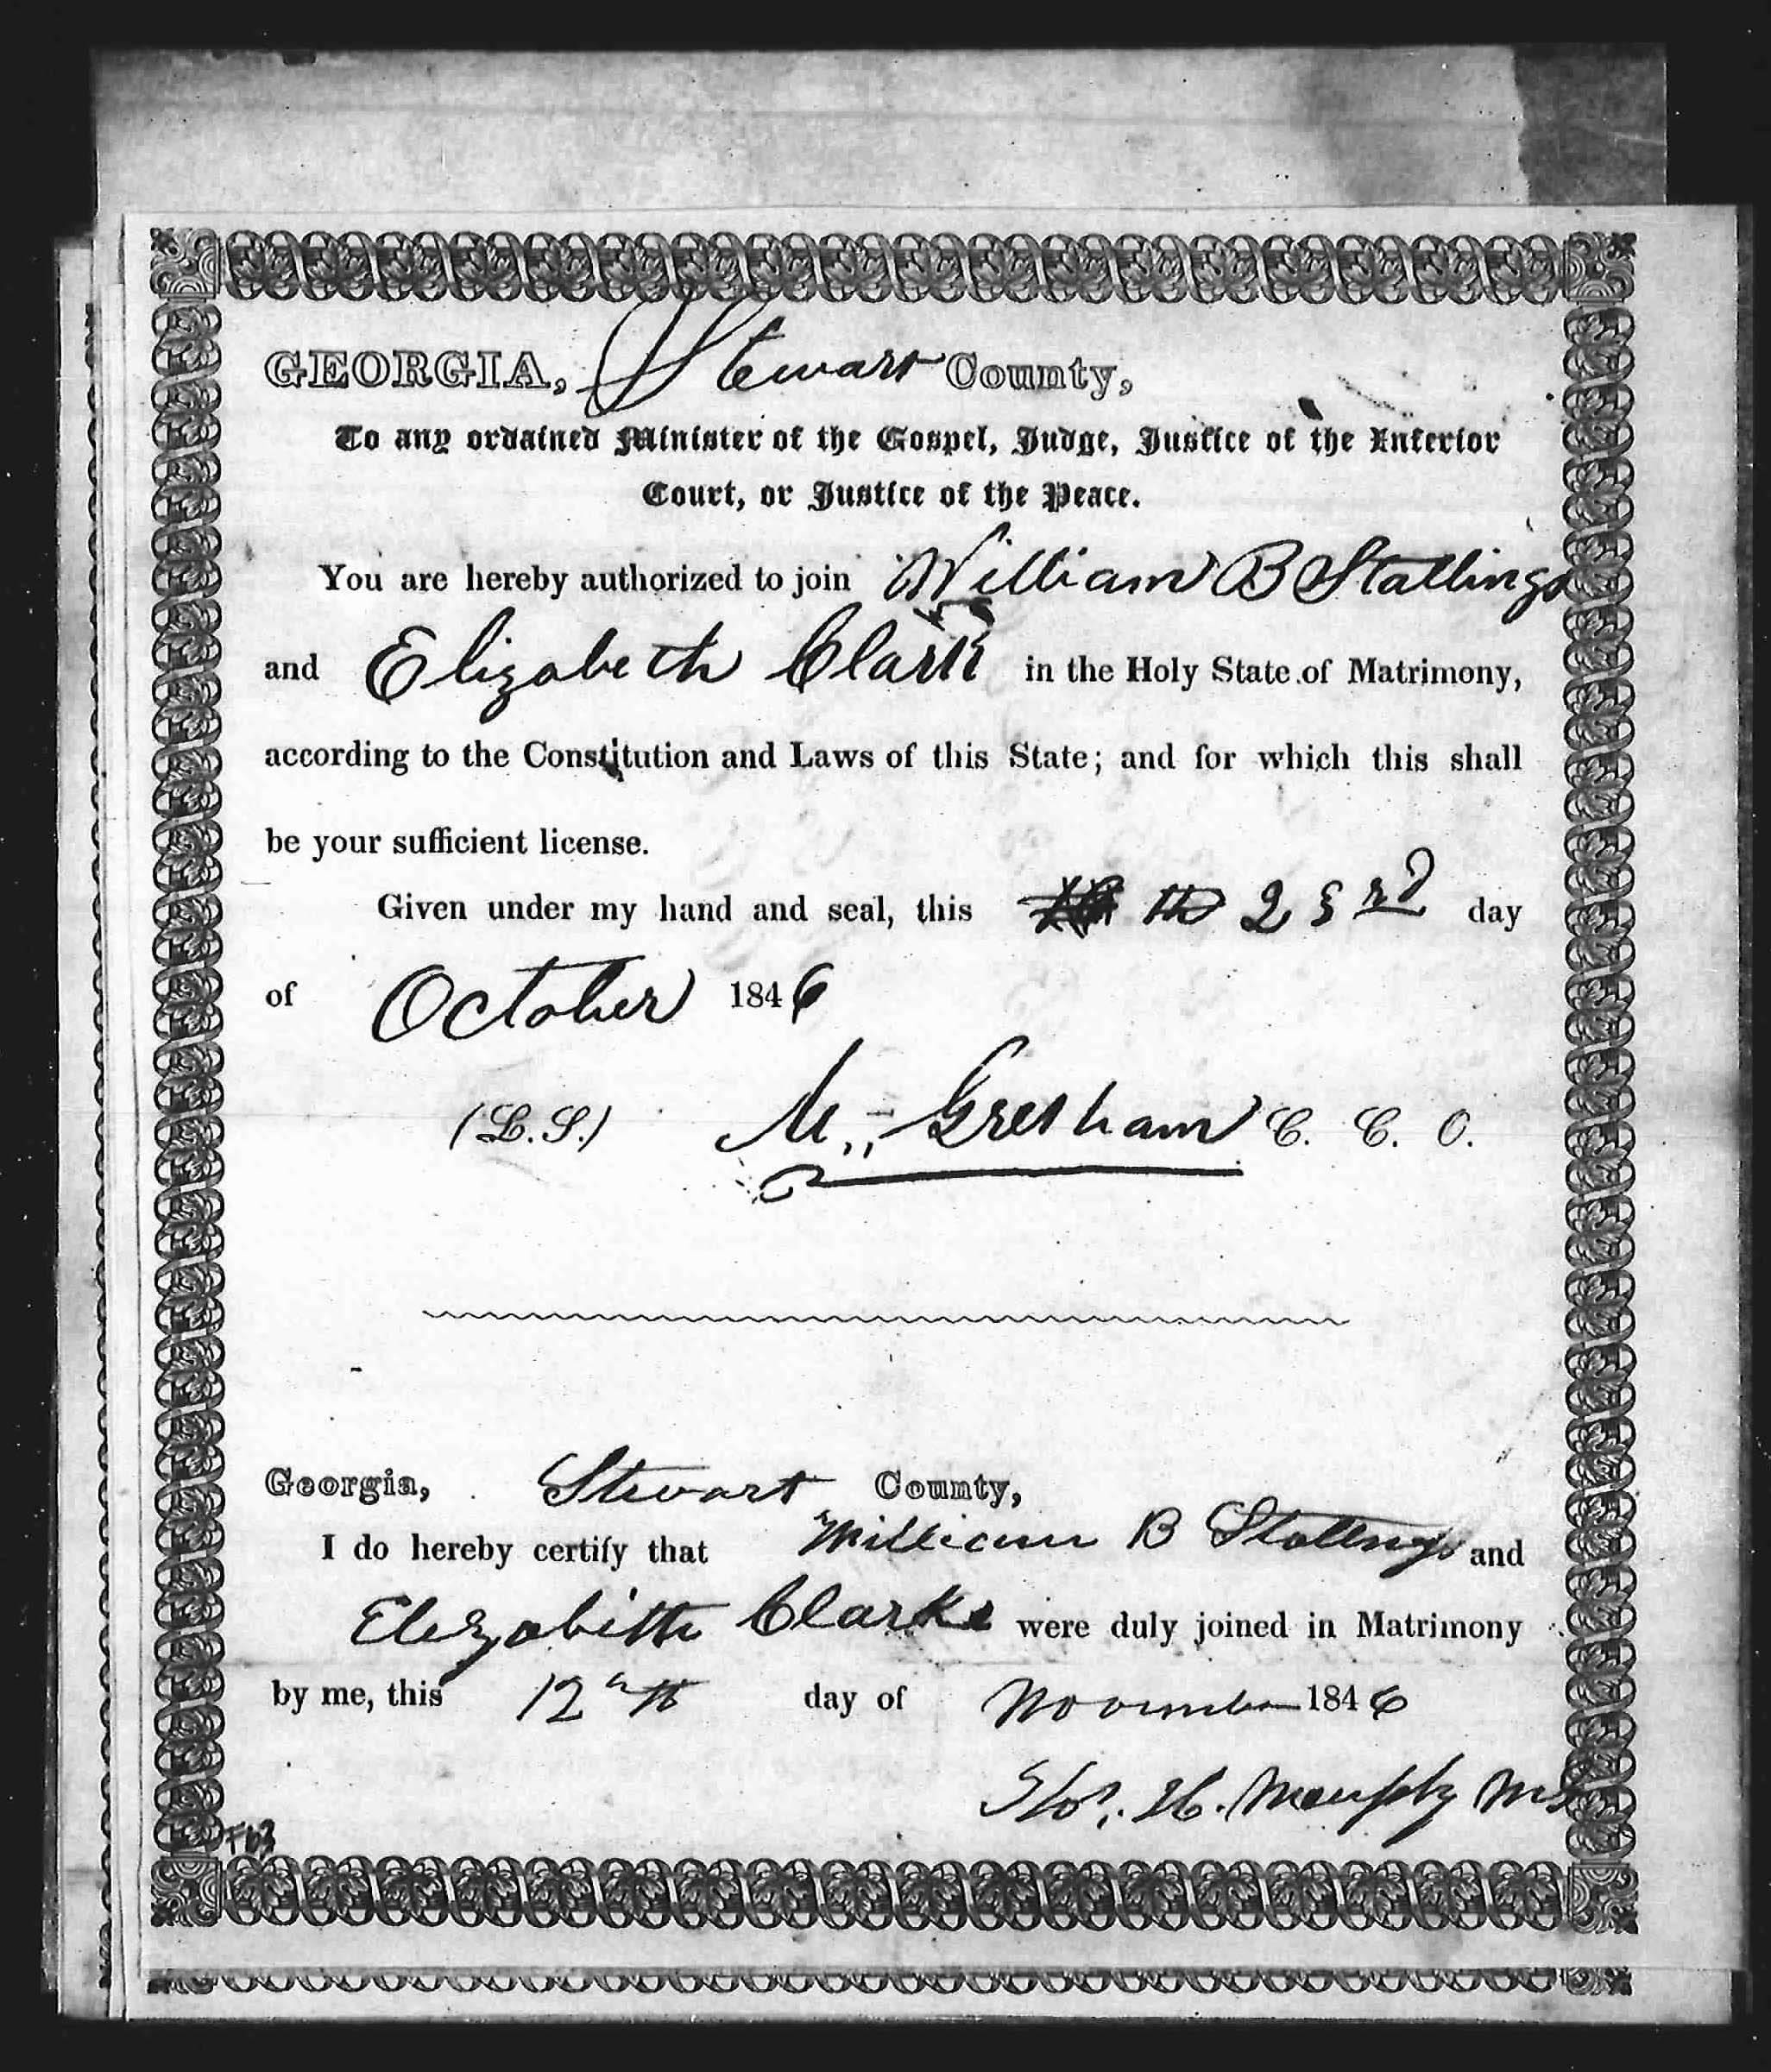 GEORGIA, Stewart County,
To any ordained Minister of the Gospel, Judge, Justice of the Inferior
Court, or Justice of the Peace.
You are hereby authorized to join William B Stallings
and Elizabeth Clark in the Holy State of Matrimony,
according to the Constitution and Laws of this State; and for which this shall
be your sufficient license.
Given under my hand and seal, this th 23rd day
of October 1846
(L.S.) M. Gresham C. C. O.
Georgia, Stewart County,
I do hereby certify that William B Stallings and
Elezabeth Clarke were duly joined in Matrimony
by me, this 12th day of November 1846
H. Murphy